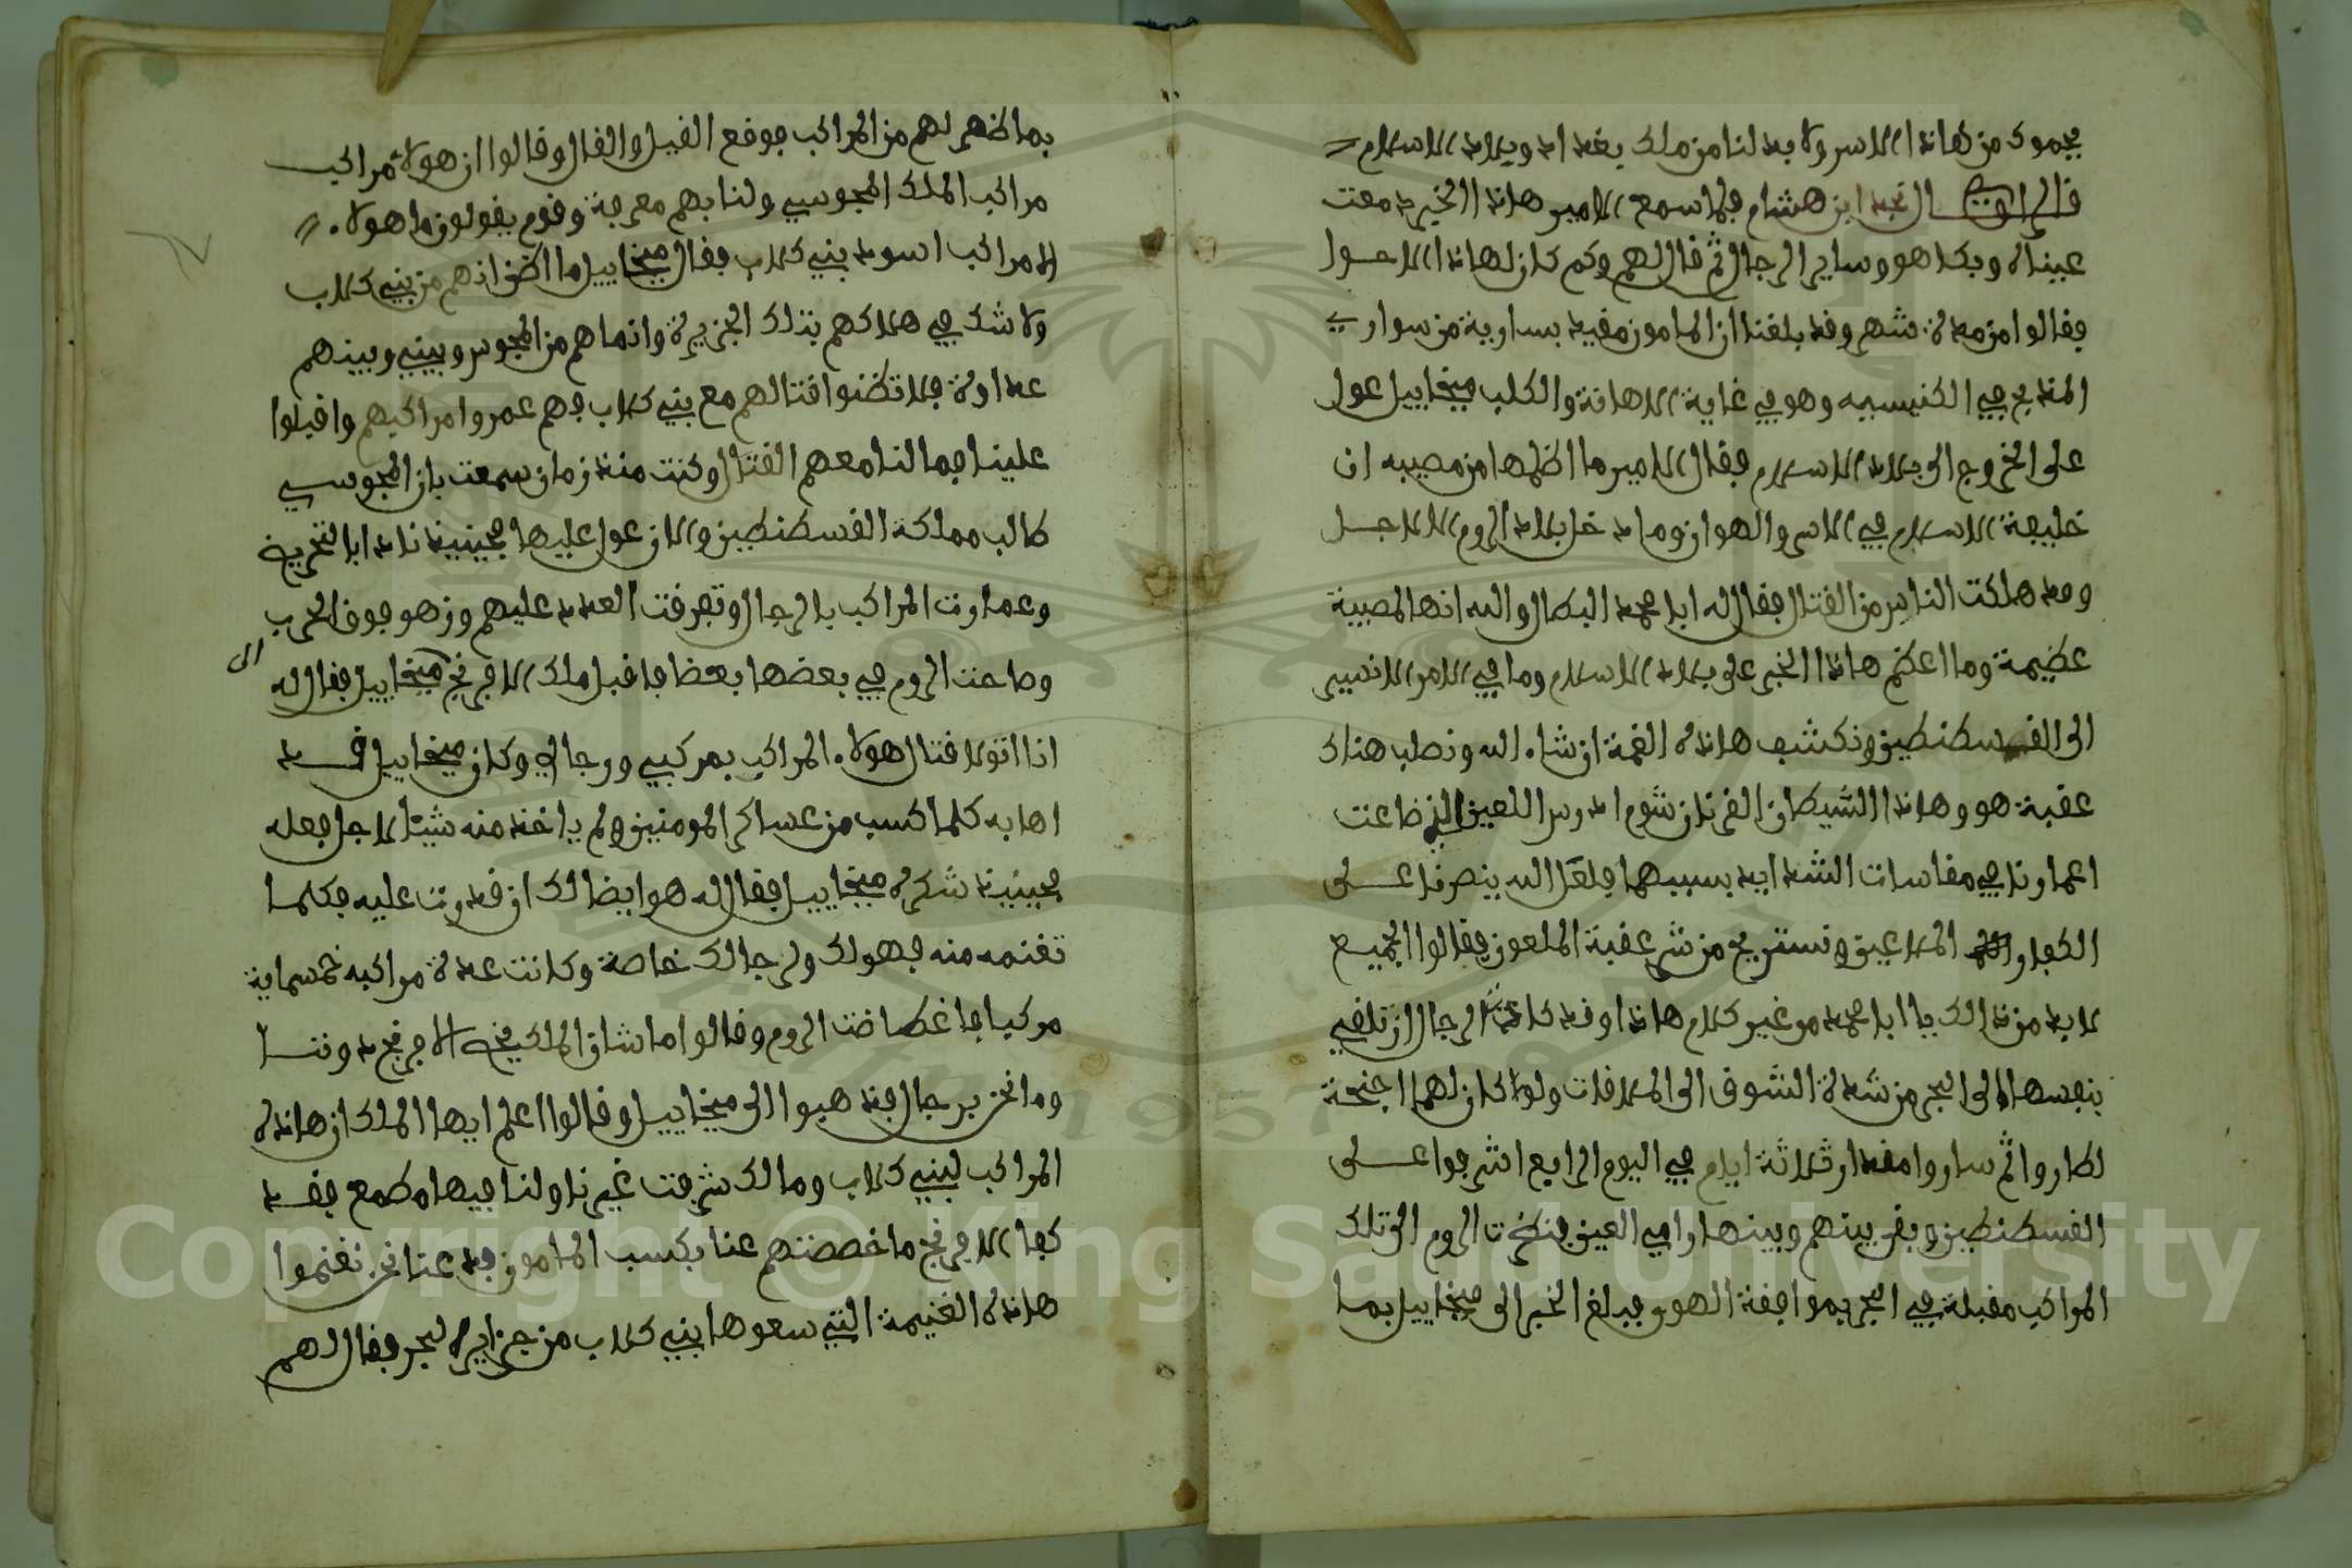 يجموك من هاذا الاسر ولا بد لنا من ملك بغداد وبلاد الاسلام
قال الراوي قال نجد ابن هشام فلما سمع الامير هاذا الخبر دمعت
عيناه وبكا هو وساير الرجال ثم قال لهم وكم كان لهاذا الاحوال
فقالوا من مدة شهر وقد بلغنا ان المامون مقيد بسارية من سواري
المذبح في الكنيسيه وهو في غاية الاهانة والكلب ميخاييل عول
على الخروج الى بلاد الاسلام فقال الامير ما اظلها من مصيبه ان
خليفة الاسلام في الاسر والهوان وما دخل بلاد الروم الا لاجل
وقد هلكت الناس من القتال فقال له ابا محمد البطال والله انها لمصيبة
عظيمة وما اعظم هاذا الخبر على بلاد الاسلام وما في الامر الا نسير
الى القسطنطين ونكشف هاذه الغمة ان شاء الله ونصلب هناك
عقبة هو وهاذا الشيطان القرنان شوم ادرس اللعين الذ ضاعت
اعمارنا في مقاسات الشدايد بسببهما فلعل الله ينصرنا على
الكفار الملاعين ونستريح من شر عقبة الملعون فقالوا الجميع
لا بد من ذالك يا ابا محمد من غير كلام هاذا وقد كادت الرجال ان تلقي
بنفسها الى البحر من شدة الشوق الى الملاقات ولو كان لهم اجنحة
لطاروا ثم ساروا مقدار ثلاثة ايام في اليوم الرابع اشرفوا على
القسطنطين وبقى بينهم وبينها رامي العين فنظرت الروم الى تلك
المراكب مقبلة في البحر بموافقة الهوى فبلغ الخبر الى ميخاييل بما
بما ظهر لهم من المراكب فوقع القيل والقال وقالوا ان هولاء مراكب
مراكب الملك المجوسي ولنا بهم معرفة وقوم يقولون ما هولاء
المراكب اسود بني كلاب فقال ميخاييل ما اظن انهم من بني كلاب
ولا شك في هلاكهم بتلك الجزيرة وانما هم من المجوس وبيني وبينهم
عداوة فلا تظنوا قتالهم مع بني كلاب فهم عمروا مراكبهم واقبلوا
علينا فما لنا معهم القتال وكنت منذ زمان سمعت بان المجوسي
طالب مملكة القسطنطين والان عول عليها فحينيذ نادا بالتحريض
وعمارت المراكب بالرجال وتفرقت العدد عليهم وزهو فوق الحرب
وضاعت الروم في بعضها بعضا فاقبل ملك الافرنج الى ميخاييل فقال له
انا اتولا قتال هولاء المراكب بمركبي ورجالي وكان ميخاييل قد
اهابه كلما كسب من عساكر المومنين ولم ياخذ منه شيئا لاجل فعله
فحينيذ شكره ميخاييل فقال له هو ايضا لك ان قدرت عليه فكلما
تغنمه منه فهو لك ولرجالك خاصة وكانت عدة مراكبه خمسماية
مركبا فاغطاضت الروم وقالوا ما شان الملك يخص الافرنج دوننا
وما نحن برجال فذهبوا الى ميخاييل وقالوا اعلم ايها الملك ان هاذه
المراكب لبني كلاب ومالك شرفت غيرنا ولنا فيها مطمع فقد
كفا الافرنج ما خصصتهم عنا بكسب المامون فدعنا نحن نغنموا
هاذه الغنيمة التي سعوها بني كلاب من جزاير البحر فقال لهم